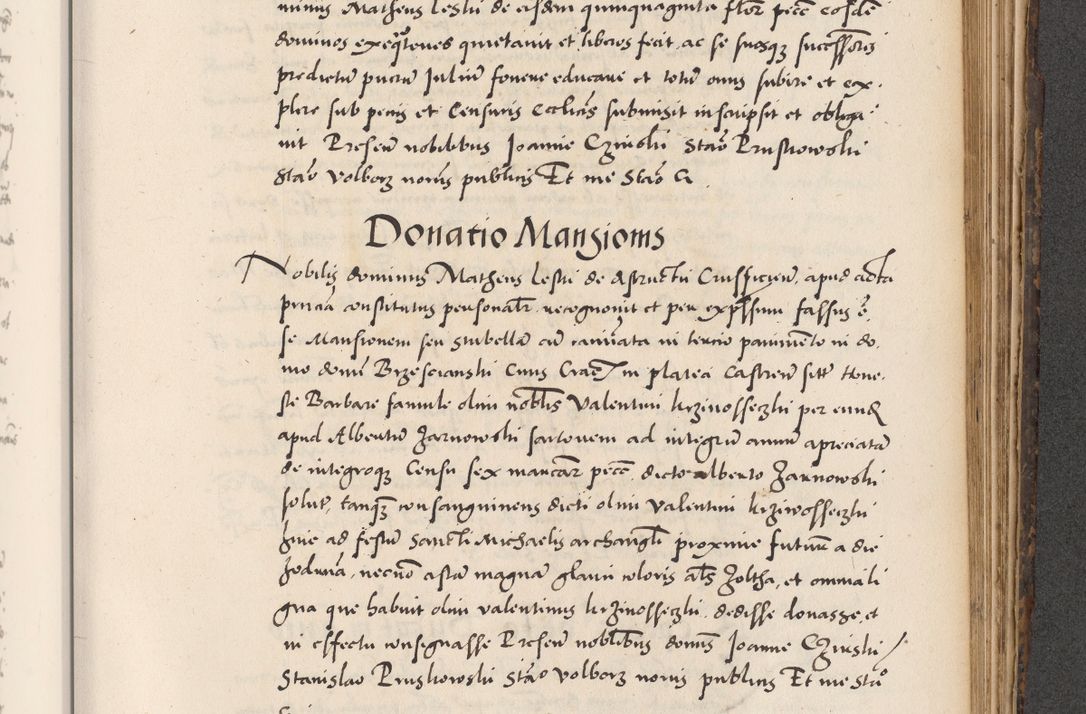 minus Matheus Lesti de eisdem quinquaginta flor pecc eosdē
dominos exeqtores quietavit et liberos fecit ac se suosq successores
predictū puerū Juliū fovere educare et totū onus subire et ex
plere sub penis et Censuris ecclīcis submisit inscripsit et obliga
vit Presen nobilibus Joanne Czirski Stao Pruskowski
Stao Volborz noris publicis Et me Stao
Donatio Mansionis
Nobilis dominus Matheus Lesti de apud acta
pncia constitutus personalr recognovit et per expssum fassus ē
se Mansionem seu Stubellā cū camrata in tercio pavimēto in do
mo domi Brzescianski Cnus Crac in platea Castren sitt Hone
ste Barbare famule olim nobilis Valentini krzivosseczki per eund
apud Albertū Żarnowski sartorem ad integrū annū apreciatā
de integroq Censu sex marcar pecc dicto Alberto Żarnowski
solut tanq consanguineus dicti olim Valentini krziwosseczki
hinc ad festū Sancti Michaelis archangli proxime futur a die
hodierna, necnō astā magnā glauci coloris als żoltha, et omnia li
gna que habuit olim Valentinus krzivosseczki dedisse donasse et
in effectu consignasse Presen nobilibus domis Joanne Czirski
Stanislao Pruskowski Stao Volborz noris publicis Et me Stao